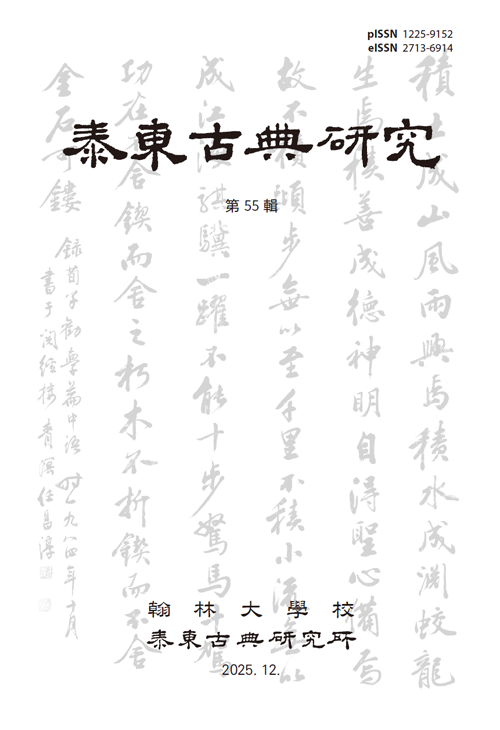 pISSN 1225-9152
eISSN 2713-6914
泰東古典硏究
第 55 輯
積土成山風雨興焉積水成淵蛟龍
生焉積善成德神明自得聖心備焉
故不積蹞步無以至千里不積小流無以
成江海騏驥一躍不能十步駑馬十駕
功在不舍鍥而舍之朽木不折鍥而不舍
金石可鏤
錄荀子勸學篇中語 時一九八四年十月
書于閱經樓 靑溟任昌淳
翰林大學校
泰東古典硏究所
2025. 12.